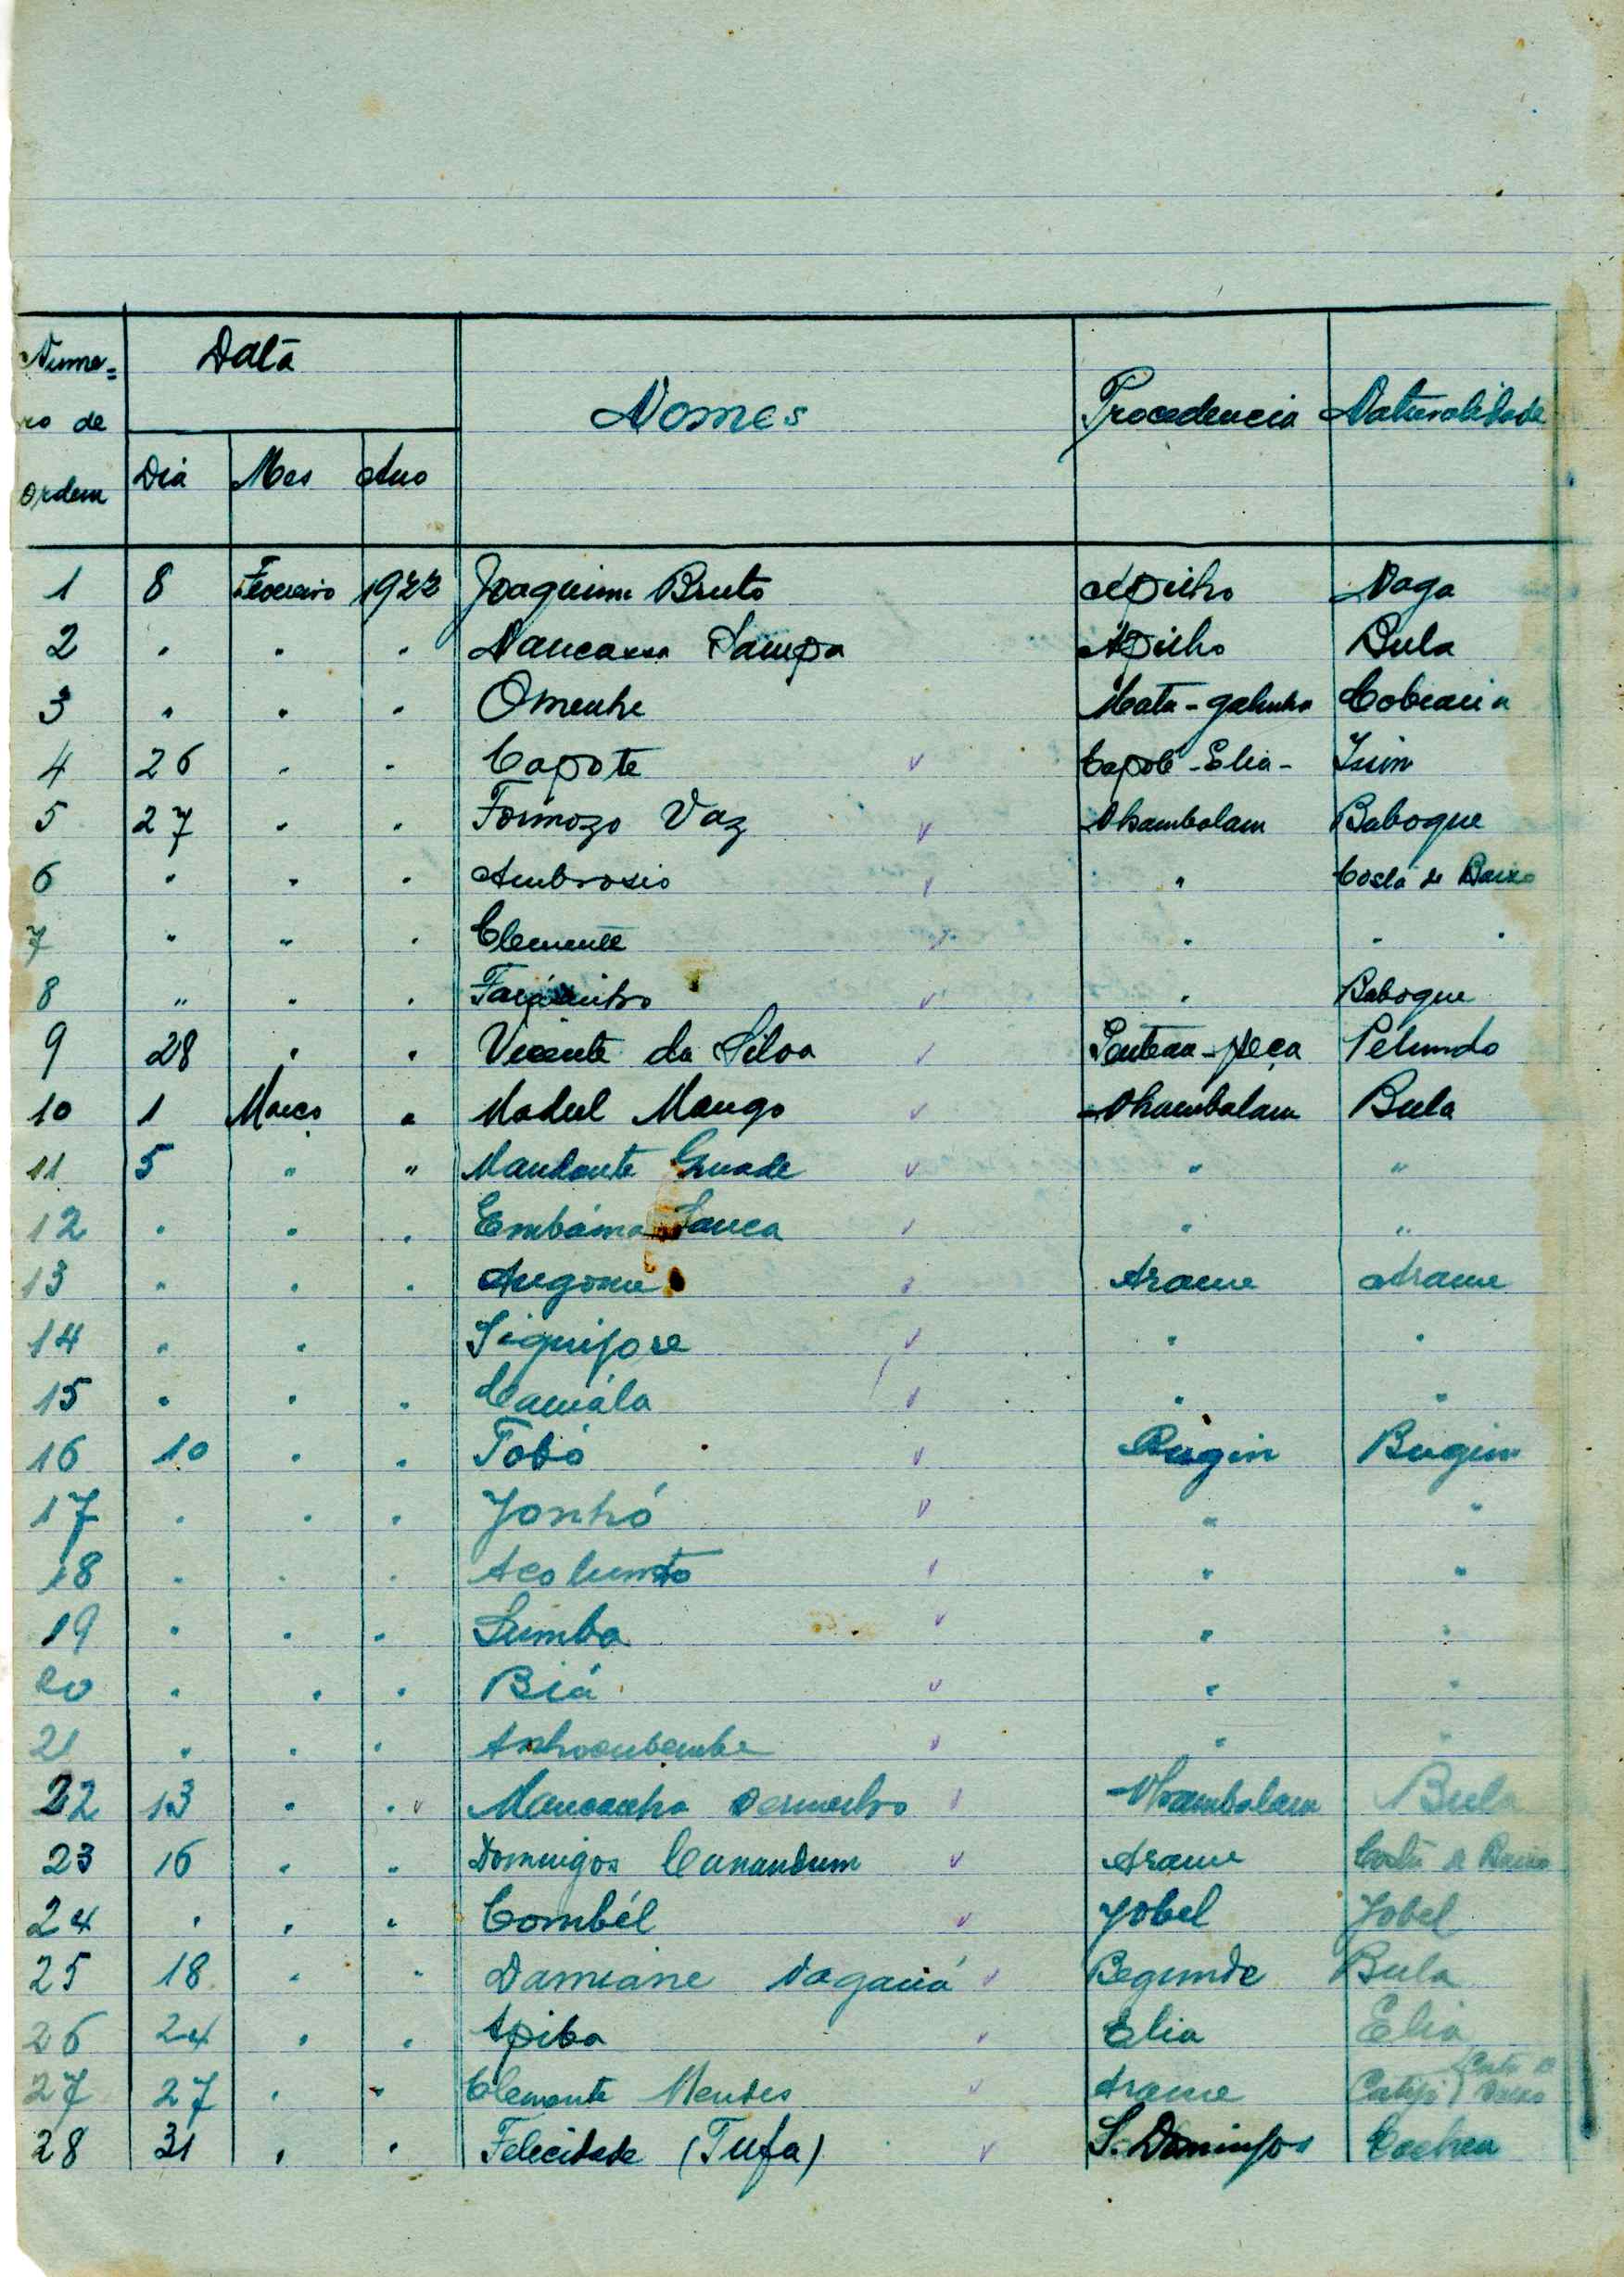 Nume=
ro de
Ordem
Data
Dia Mes Ano
Nomes
Procedencia
Naturalidade
1 8 Fevereiro 1922 Joaquim Bruto Apilho Naga
2 " " " Nancassa Sampa Apilho Bula
3 " " " Omenhe Mata-galinha Cobiana
4 26 " " Capote ✓ Capolé-Elia- Jiin
5 27 " " Formozo Vaz ✓ Nhambalam Baboque
6 " " " Ambrosio ✓ " Costa de Baixo
7 " " " Clemente ✓ " " "
8 " " " ✓ " Baboque
9 28 " " Vicente da Silva ✓ Pelundo
10 1 Março " Madul Mango ✓ Nhambalam Bula
11 5 " " Mandonte ✓ " "
12 " " " Embáma Sanca ✓ " "
13 " " " Augome ✓ Arame Arame
14 " " Siquifose ✓ " "
15 " " " Camála ✓ " "
16 10 " " Tobó ✓ Bugin Bugim
17 " " " Jonhó ✓ " "
18 " " " Acolumto ✓ " "
19 " " " Lumba ✓ " "
20 " " " Biá ✓ " "
21 " " " ✓ " "
22 13 " " ✓ Mancanha ✓ Nhambalam Bula
23 16 " " Domingos Canandum ✓ Arame Costa de Baixo
24 " " " Combél ✓ Jobel Jobel
25 18 " " Damiane Naganá ✓ Begunde Bula
26 24 " " Apiba ✓ Elia Elia
27 27 " " Clemente Mendes ✓ Arame Catiji (Costa de Baixo
28 31 " " Felicidade (Tufa) ✓ S. Domingos Cacheu